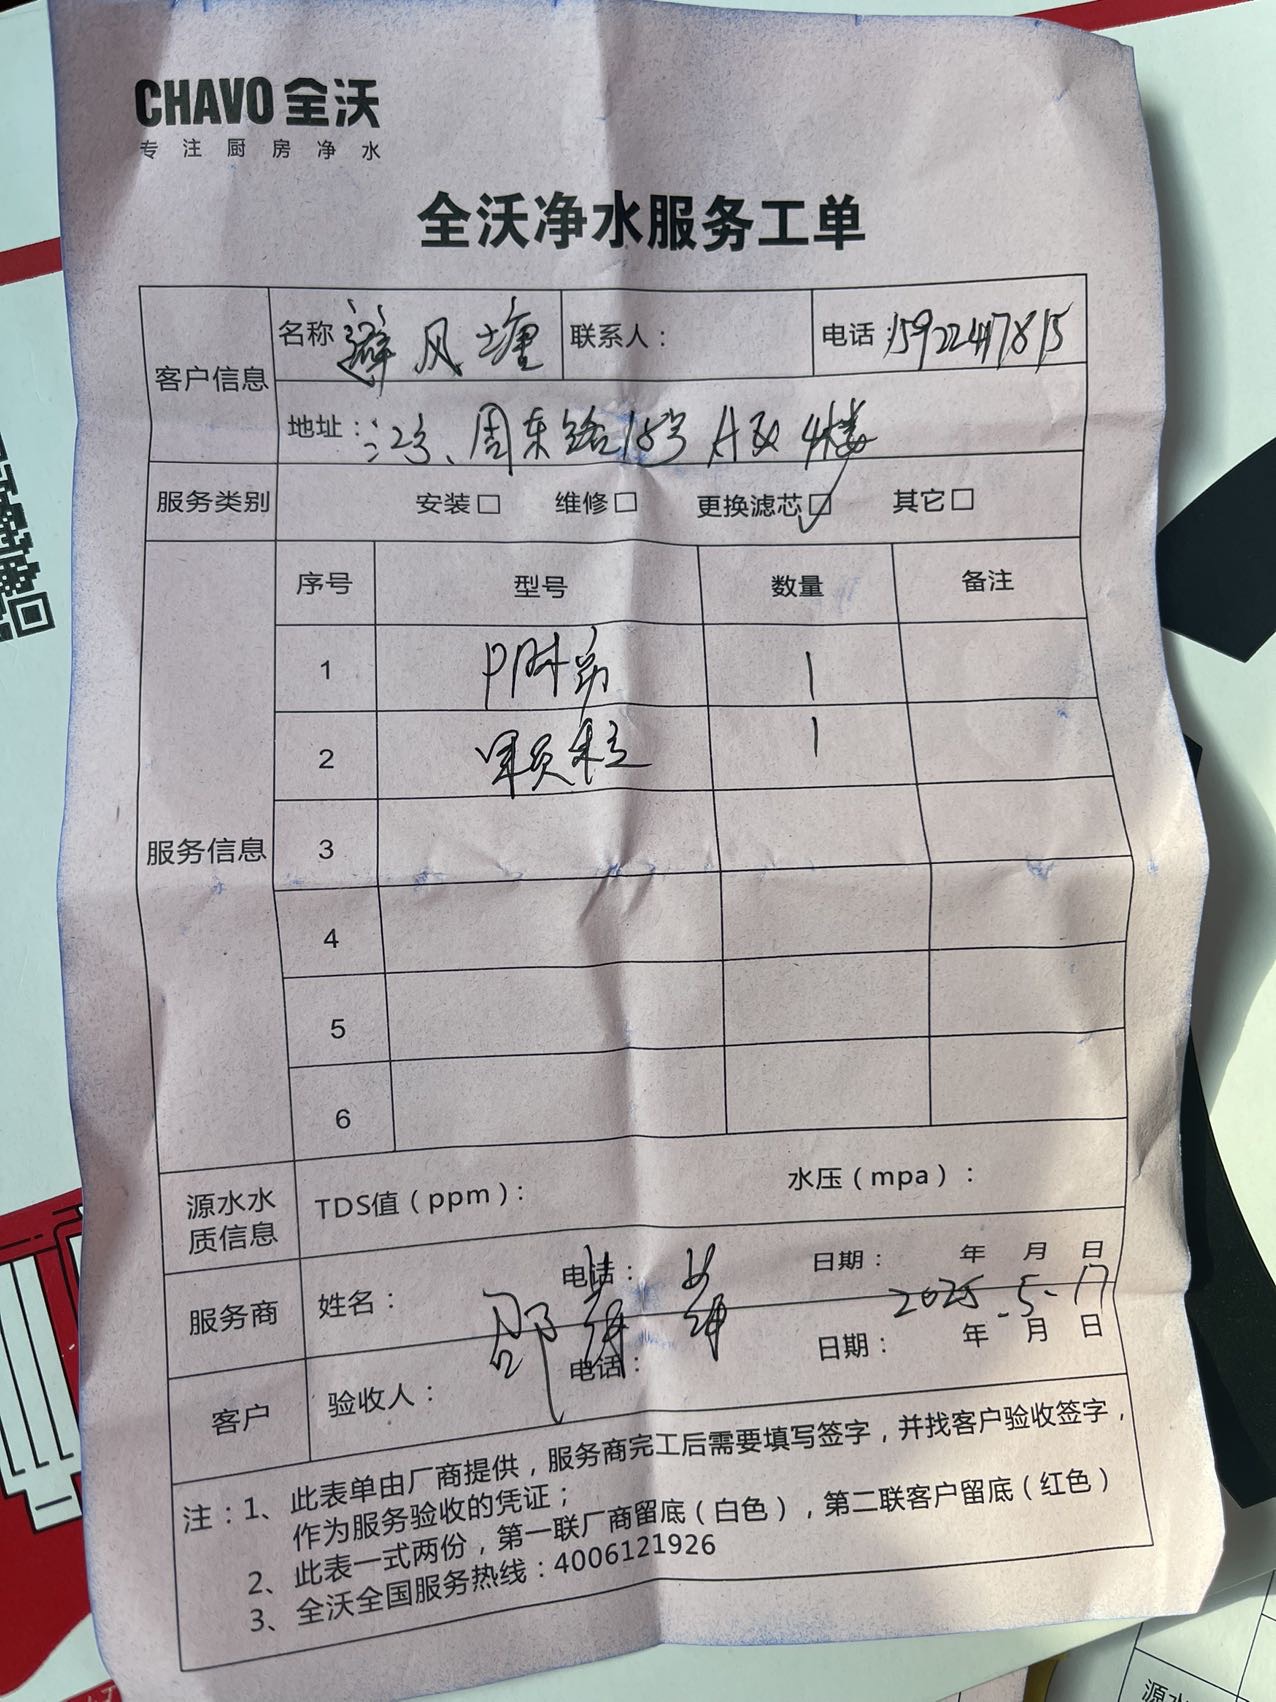 CHAVO 全沃
专注厨房净水
全沃净水服务工单
客户信息
名称 避风塘 联系人： 电话：15922417815
地址： 周东路18号 A区 4楼
服务类别 安装□ 维修□ 更换滤芯☑ 其它□
服务信息
序号 型号 数量 备注
1 PP 1
2 颗粒 1
3
4
5
6
源水水质信息 TDS值（ppm）： 水压（mpa）：
服务商 姓名： 电话： 日期： 年 月 日
2025-5-17
客户 验收人： 邵 电话： 日期： 年 月 日
注：1、此表单由厂商提供，服务商完工后需要填写签字，并找客户验收签字，
作为服务验收的凭证；
2、此表一式两份，第一联厂商留底（白色），第二联客户留底（红色）
3、全沃全国服务热线：4006121926
源水